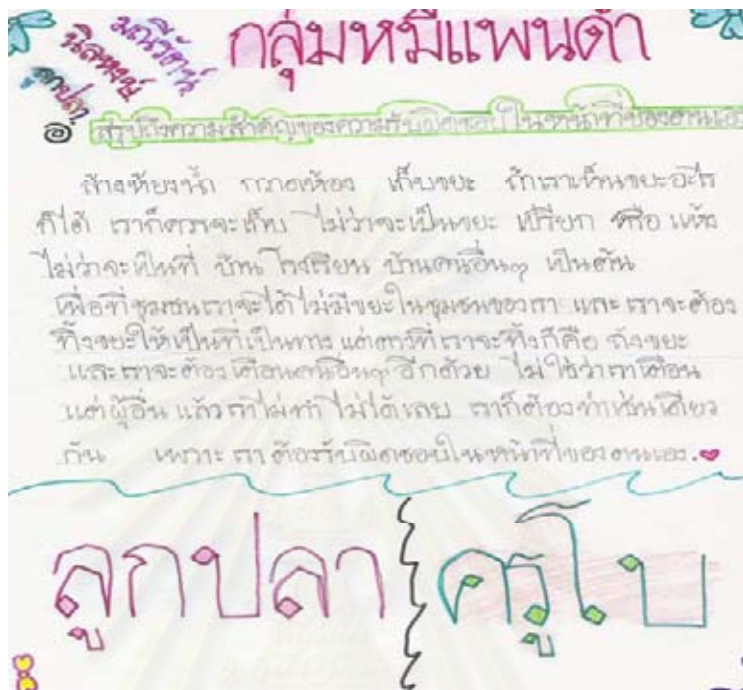 มณีรัตน์
นิลพงษ์
ลูกปลา
กลุ่มหมีแพนด้า
๑ สรุปถึงความสำคัญของความรับผิดชอบในหน้าที่ของตนเอง
ล้างห้องน้ำ กวาดห้อง เก็บขยะ ถ้าเราเห็นขยะอะไร
ก็ได้ เราก็ควรจะเก็บ ไม่ว่าจะเป็นขยะ เปรียก หรือ แห้ง
ไม่ว่าจะเป็นที่ บ้าน โรงเรียน บ้านคนอื่นๆ เป็นต้น
เพื่อที่ชุมชนเราจะได้ไม่มีขยะในชุมชนของเรา และเราจะต้อง
ทิ้งขยะให้เป็นที่เป็นทาง แต่ทางที่เราจะทิ้งก็คือ ถังขยะ
และเราจะต้องเตือนคนอื่นๆ อีกด้วย ไม่ใช่ว่าเราเตือน
แต่ผู้อื่น แล้วเราไม่ทำ ไม่ได้เลย เราก็ต้องทำเช่นเดียว
กัน เพราะ เราต้องรับผิดชอบในหน้าที่ของตนเอง.
ลูกปลา
ครูโบ